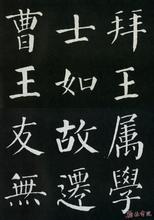 拜王属學
士如故遷
曹王友無